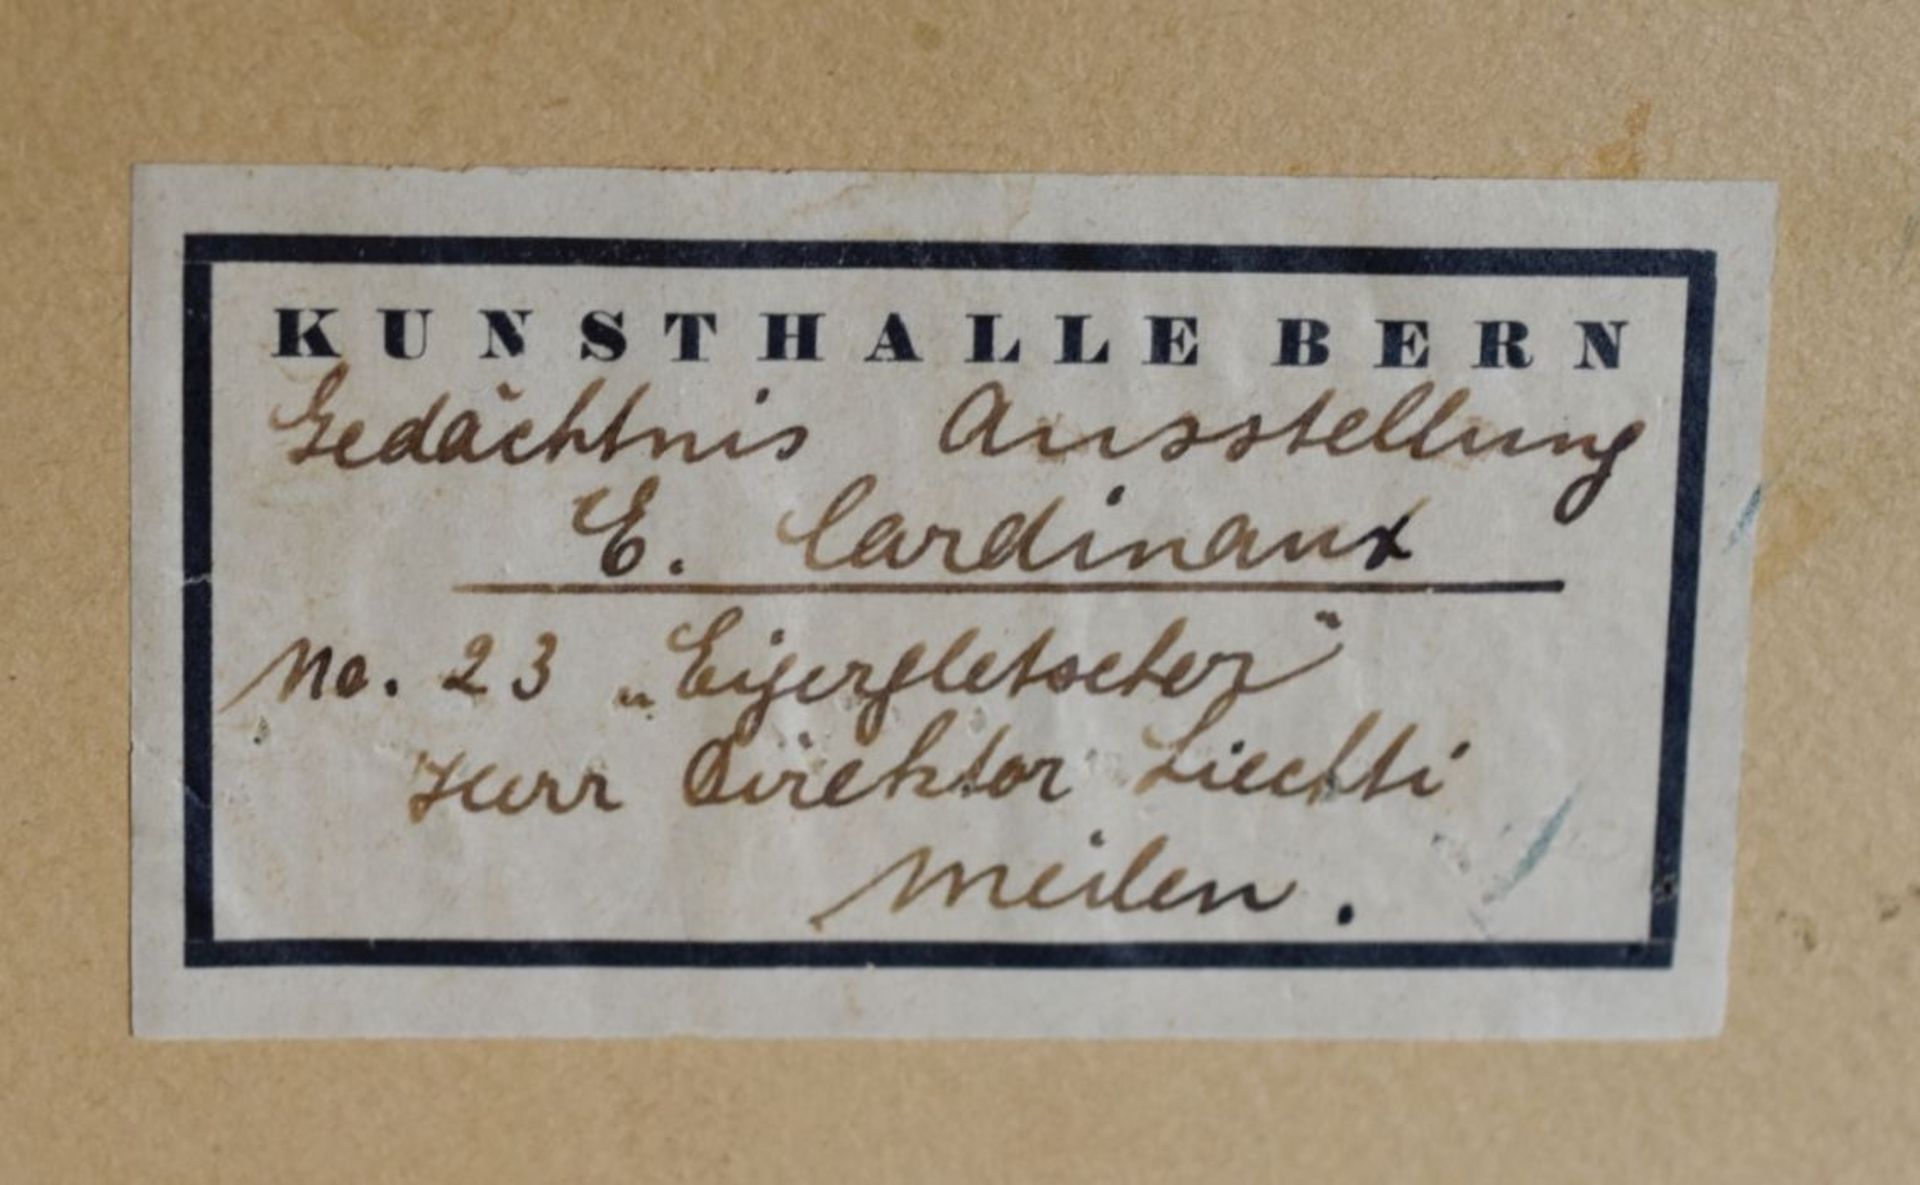 KUNSTHALLE BERN
Gedächtnis Ausstellung
E. Cardinaux
No. 23 „Eigergletscher"
Herr Direktor Liechti
Meilen.